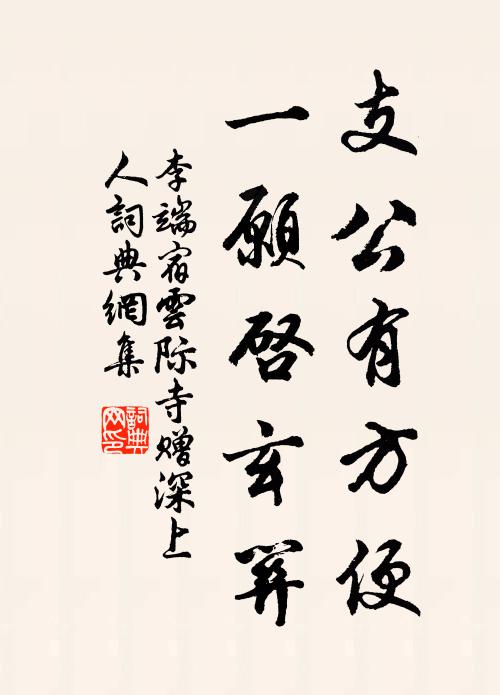 支公有方便
一願啓玄關
李端宿雲际寺赠深上
人詞典網集
詞典
网印